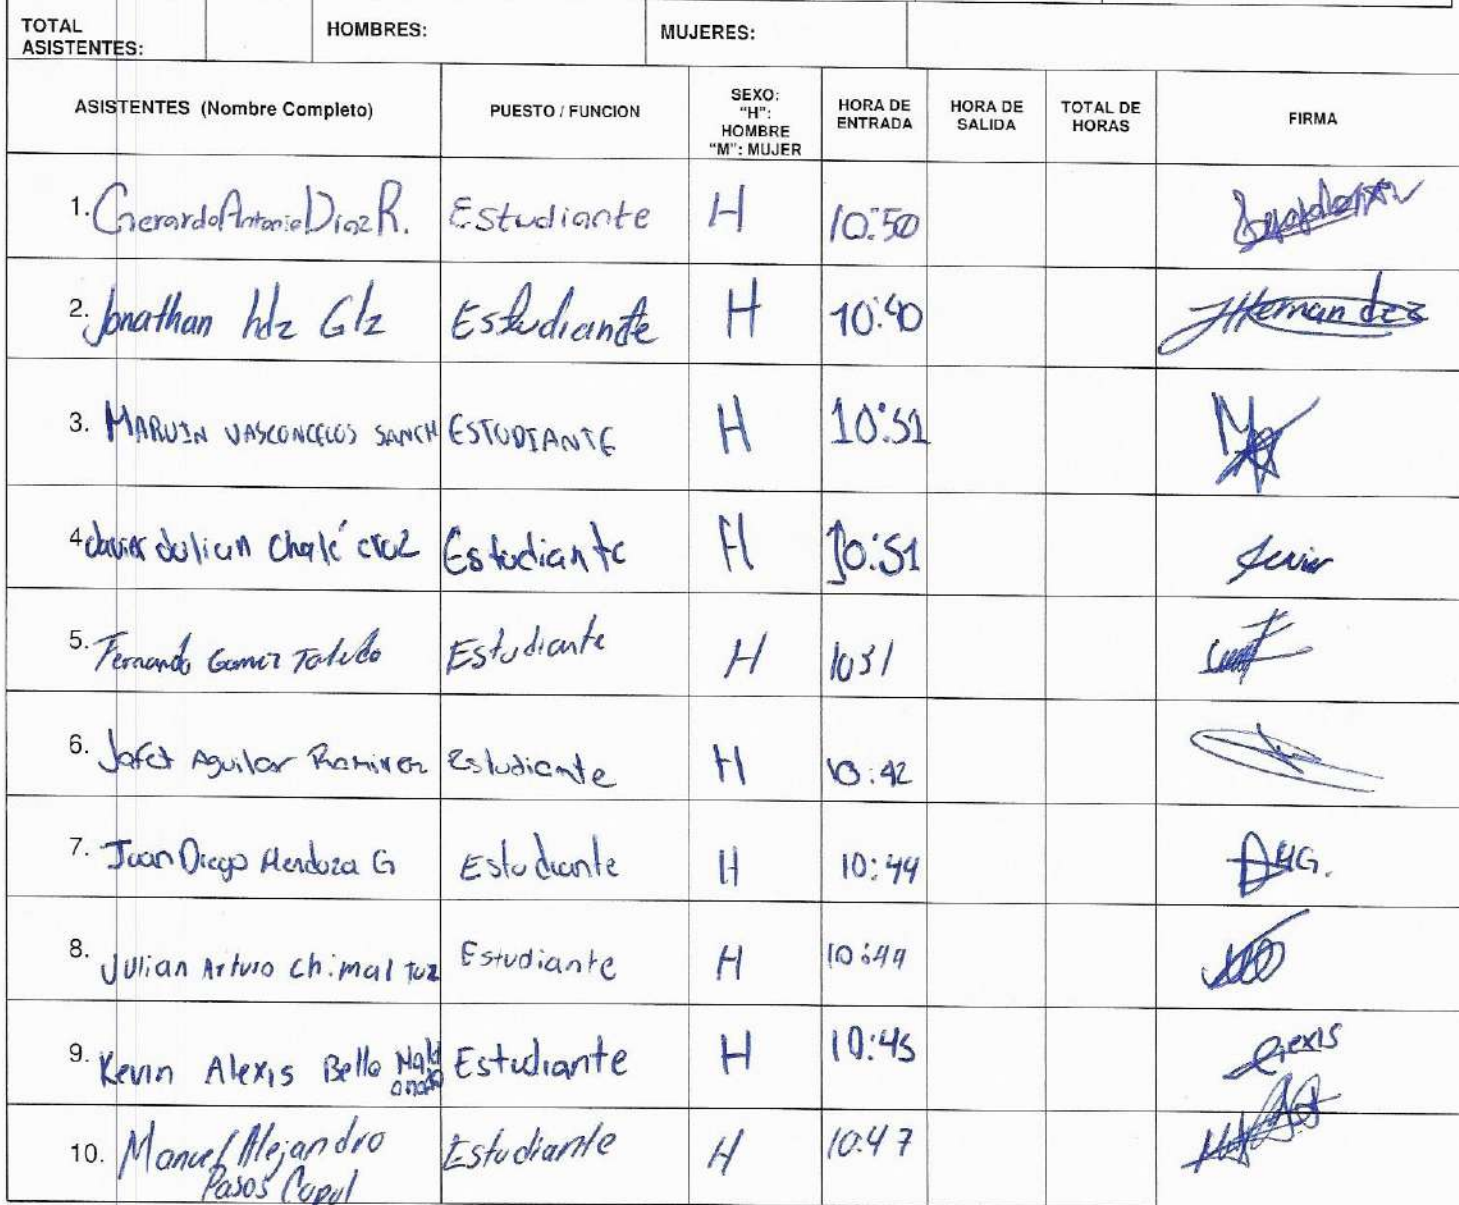 TOTAL ASISTENTES: HOMBRES: MUJERES:
ASISTENTES (Nombre Completo) PUESTO / FUNCION SEXO: "H": HOMBRE "M": MUJER HORA DE ENTRADA HORA DE SALIDA TOTAL DE HORAS FIRMA
1. Gerardo Antonio Diaz R. Estudiante H 10:50
2. Jonathan hdz Glz Estudiante H 10:40 JHernandez
3. MARVIN VASCONCELOS SANCH ESTUDIANTE H 10:51
4 Javier Julian Chalé cruz Estudiante H 10:51 Javier
5. Fernando Gomez Toledo Estudiante H 1051
6. Jafet Aguilar Ramirez Estudiante H 10:42
7. Juan Diego Mendoza G Estudiante H 10:44 DMG.
8. Julian Arturo Chimal Tuz Estudiante H 10:44
9. Kevin Alexis Bello Maldonado Estudiante H 10:45 Alexis
10. Manuel Alejandro Pasos Cupul Estudiante H 10:47